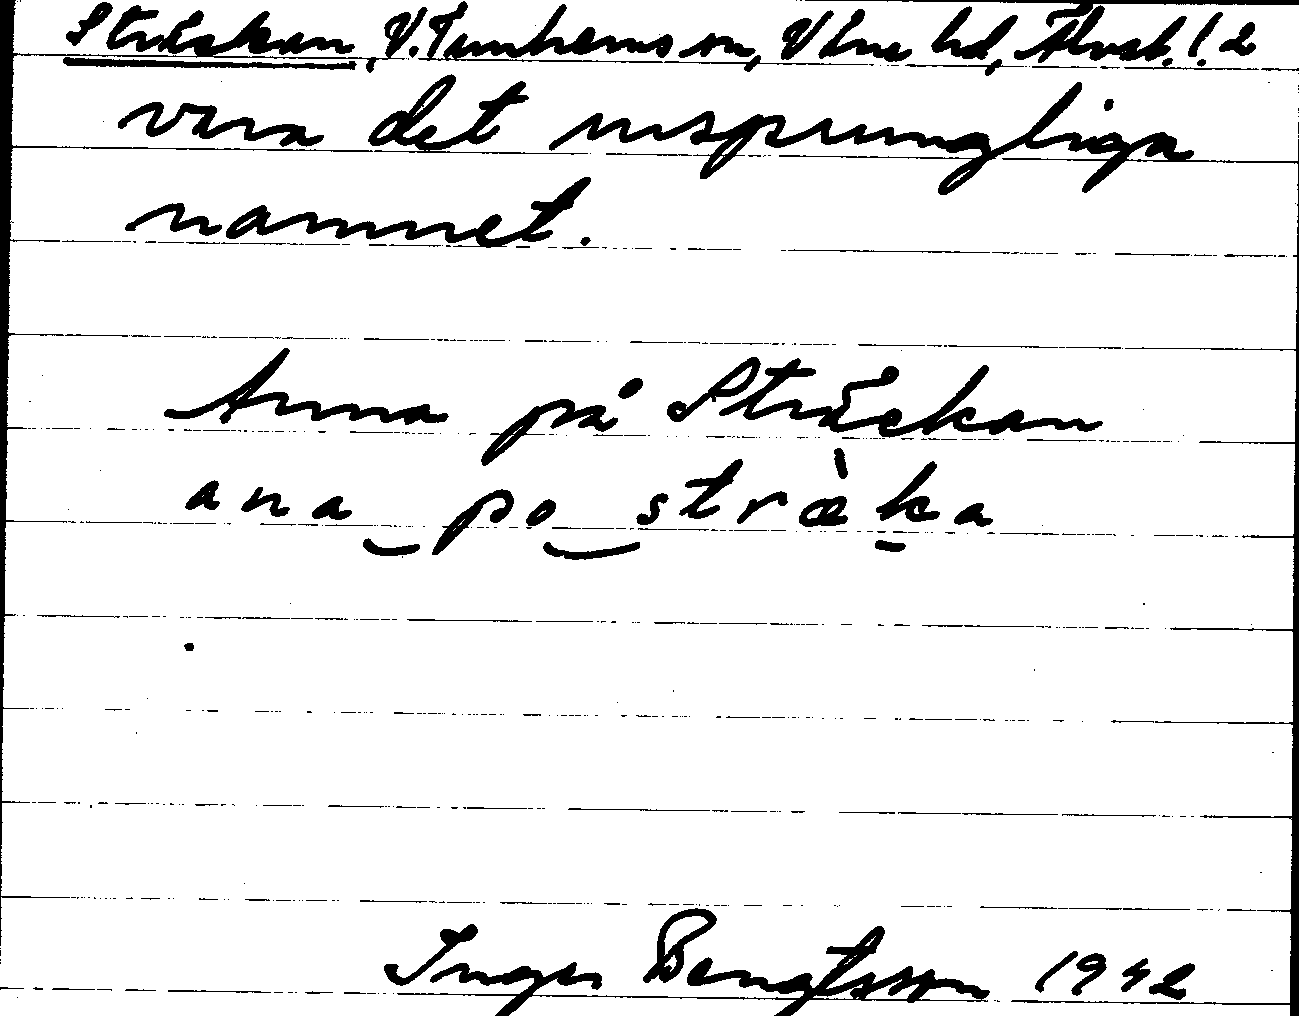 Sträckan, V. Tunhems sn, Väne hd, Älvsb. l. 2
vara det ursprungliga
namnet.
Anna på Sträckan
ana po stræ̀ka
Inger Bengtsson 1942